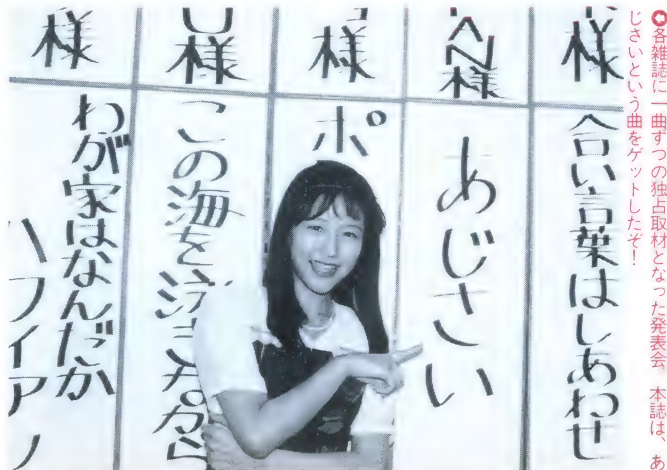 ➲各雑誌に一曲ずつの独占取材となった発表会、本誌は、あ
じさいという曲をゲットしたぞ!
様
合い言葉はしあわせ
AN様
あじさい
様
ポ
様
この海を泣きながら
様
わが家はなんだか
ハフィアノ